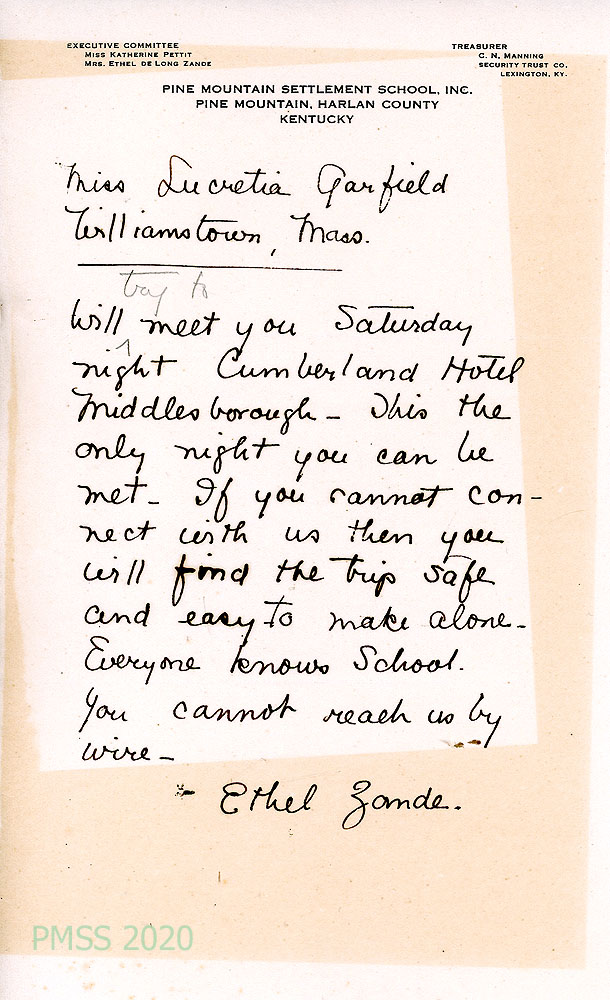 EXECUTIVE COMMITTEE
MISS KATHERINE PETTIT
MRS. ETHEL DE LONG ZANDE
TREASURER
C. N. MANNING
SECURITY TRUST CO.
LEXINGTON, KY.
PINE MOUNTAIN SETTLEMENT SCHOOL, INC.
PINE MOUNTAIN, HARLAN COUNTY
KENTUCKY
Miss Lucretia Garfield
Williamstown, Mass.
try to
Will meet you Saturday
night Cumberland Hotel
Middlesborough - This the
only night you can be
met - If you cannot con-
nect with us then you
will find the trip safe
and easy to make alone -
Everyone knows School.
You cannot reach us by
wire -
- Ethel Zande.
PMSS 2020